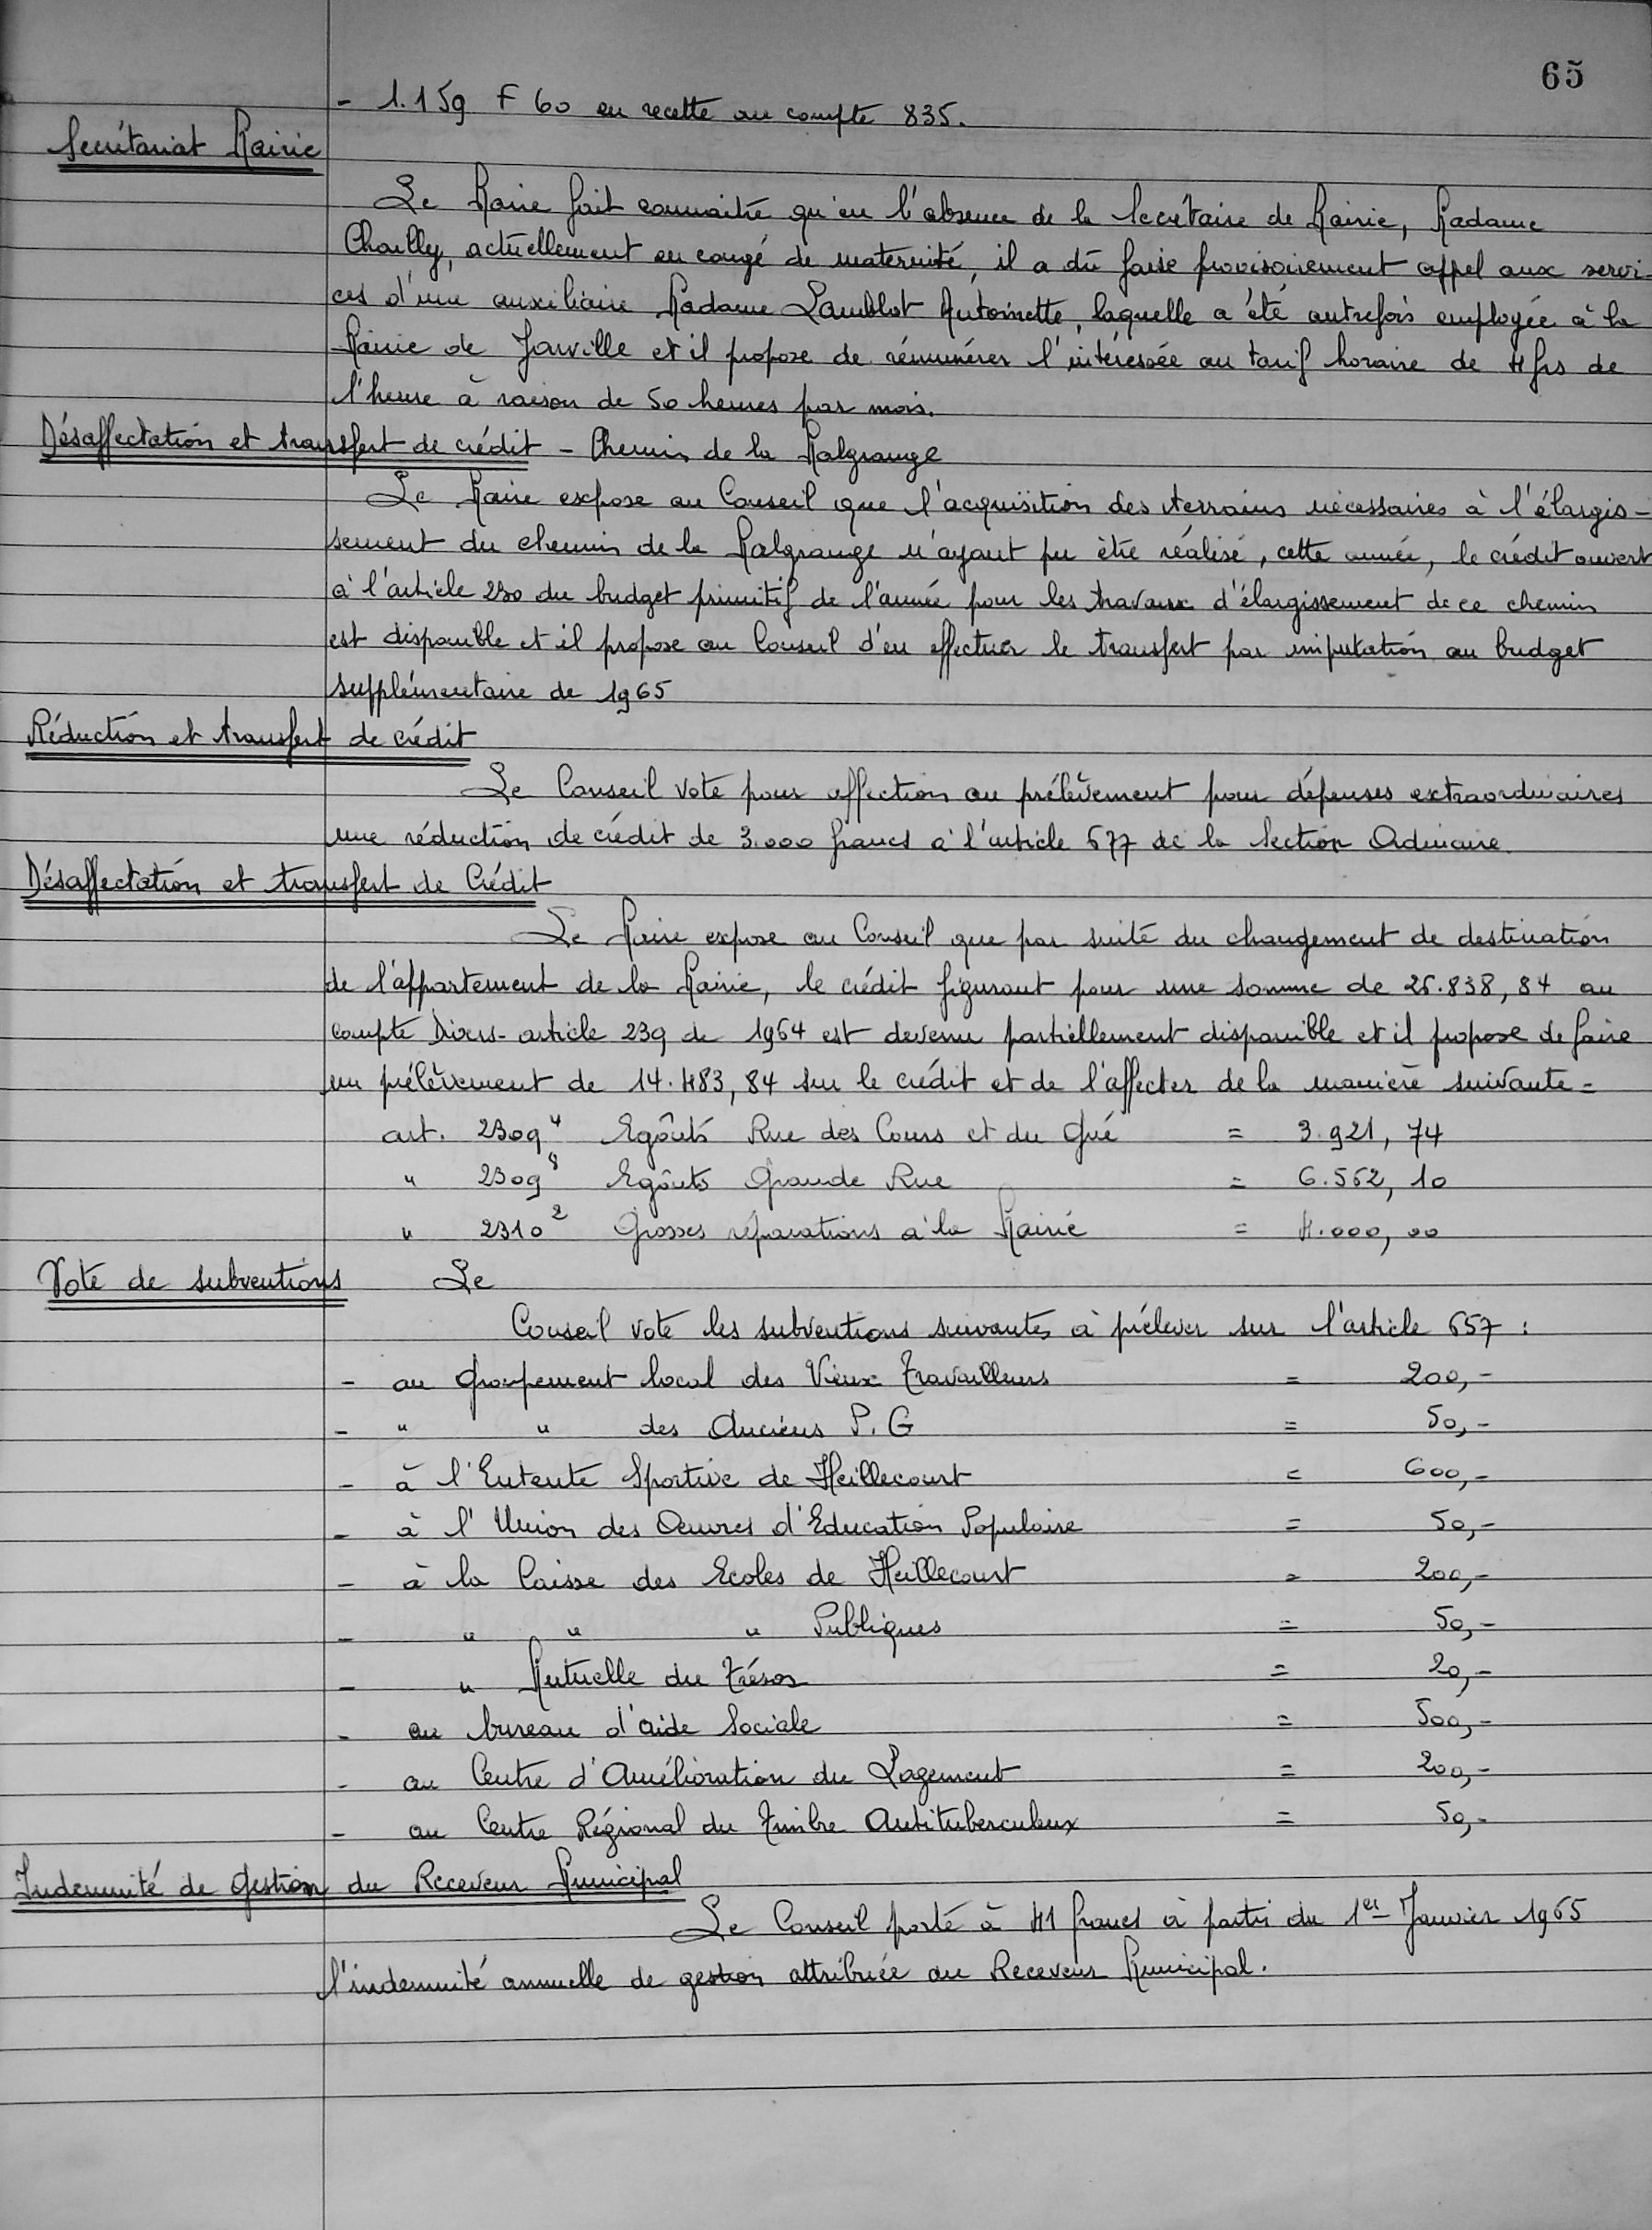 65
- 1.159 F 60 en recette au compte 835.
Secrétariat Mairie
Le Maire fait connaitre qu'en l'absence de la Secrétaire de Mairie, Madame
Chailly, actuellement en congé de maternité, il a dû faire provisoirement appel aux servi-
ces d'une auxiliaire Madame Lamblot Antoinette, laquelle a été autrefois employée à la
Mairie de Jarville et il propose de rémunérer l'intéressée au tarif horaire de 4 frs de
l'heure à raison de 50 heures par mois.
Désaffectation et transfert de crédit - Chemin de la Malgrange
Le Maire expose au Conseil que l'acquisition des terrains nécessaires à l'élargis-
sement du chemin de la Malgrange n'ayant pu être réalisé, cette année, le crédit ouvert
à l'article 230 du budget primitif de l'année pour les travaux d'élargissement de ce chemin
est disponible et il propose au Conseil d'en effectuer le transfert par imputation au budget
supplémentaire de 1965
Réduction et transfert de crédit
Le Conseil vote pour affection au prélèvement pour dépenses extraordinaires
une réduction de crédit de 3.000 francs à l'article 677 de la Section Ordinaire.
Désaffectation et transfert de Crédit
Le Maire expose au Conseil que par suite du changement de destination
de l'appartement de la Mairie, le crédit figurant pour une somme de 26.838,84 au
compte Divers - article 239 de 1964 est devenu partiellement disponible et il propose de faire
un prélèvement de 14.483,84 sur le crédit et de l'affecter de la manière suivante =
art. 2309⁴ Egôuts Rue des Cours et du Gué = 3.921,74
" 2309⁸ Egôuts Grande Rue = 6.562,10
" 2310² Grosses réparations à la Mairie = 4.000,00
Vote de subventions Le
Conseil vote les subventions suivantes à prélever sur l'article 657 :
- au Groupement local des Vieux Travailleurs = 200,-
- " " des Anciens P.G = 50,-
- à l'Entente Sportive de Heillecourt = 600,-
- à l'Union des Oeuvres d'Education Populaire = 50,-
- à la Caisse des Ecoles de Heillecourt = 200,-
- " " " Publiques = 50,-
- " Mutuelle du Trésor = 20,-
- au bureau d'aide Sociale = 500,-
- au Centre d'Amélioration du Logement = 200,-
- au Centre Régional du Timbre Antituberculeux = 50,-
Indemnité de Gestion du Receveur Municipal
Le Conseil porté à 41 francs à partir du 1er Janvier 1965
l'indemnité annuelle de gestion attribuée au Receveur Municipal.